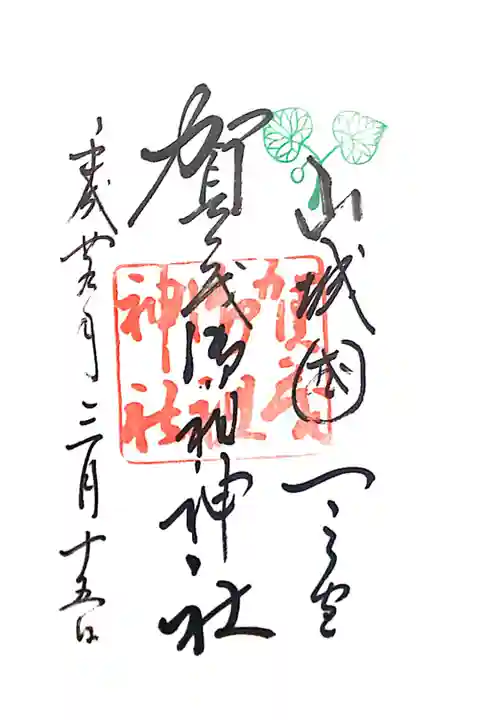 山城國一之宮
賀茂御祖神社
三月十五日
賀茂
御祖
神社